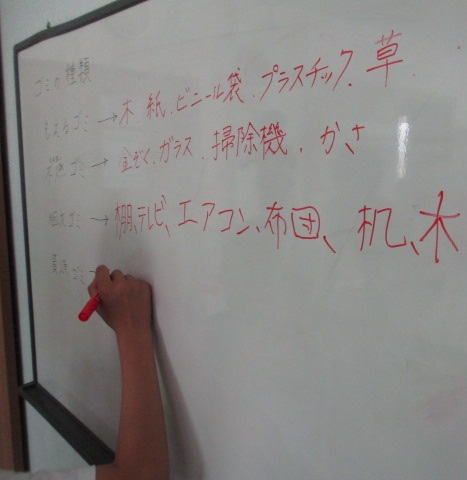 ゴミの種類
もえるゴミ→木、紙、ビニール袋、プラスチック、草
ゴミ→金ぞく、ガラス、掃除機、かさ
粗大ゴミ→棚、テレビ、エアコン、布団、机、木
資源ゴミ→